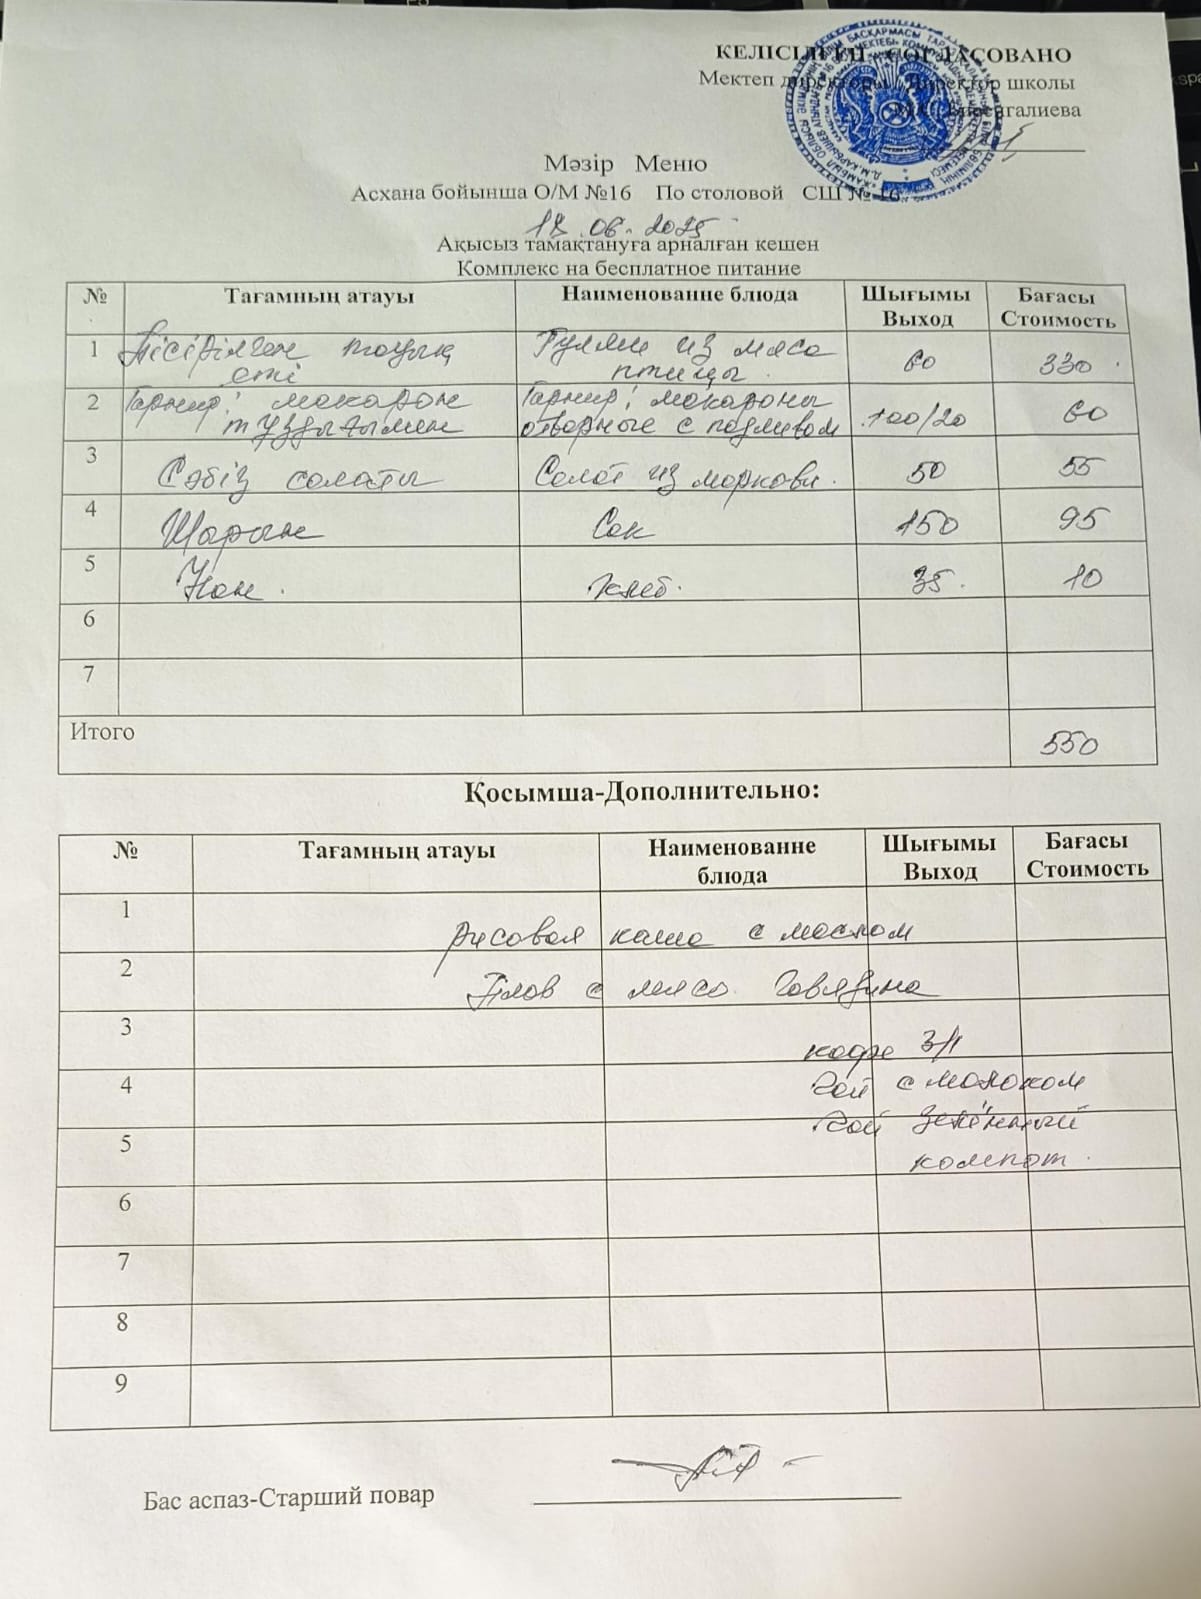 КЕЛІСІЛГЕН - СОГЛАСОВАНО
Мектеп директоры Директор школы
Бирengалиева
Мәзір Меню
Асхана бойынша О/М №16 По столовой СШ № 16
18.06.2025
Ақысыз тамақтануға арналған кешен
Комплекс на бесплатное питание
№ Тағамның атауы Наименование блюда Шығымы Выход Бағасы Стоимость
1 Пісірілген тауық еті Гуляш из мяса птицы 60 330
2 Гарнир: макарон тұздығымен Гарнир: макароны отварные с подливом 100/20 60
3 Сәбіз салаты Салат из моркови. 50 55
4 Шырын Сок 150 95
5 Нан. хлеб. 35. 10
6
7
Итого 550
Қосымша-Дополнительно:
№ Тағамның атауы Наименование блюда Шығымы Выход Бағасы Стоимость
1 Рисовая каша с маслом
2 Плов с мясо говядина
3 кофе 3/1
4 чай с молоком
чай зелёный
5 компот.
6
7
8
9
Бас аспаз-Старший повар